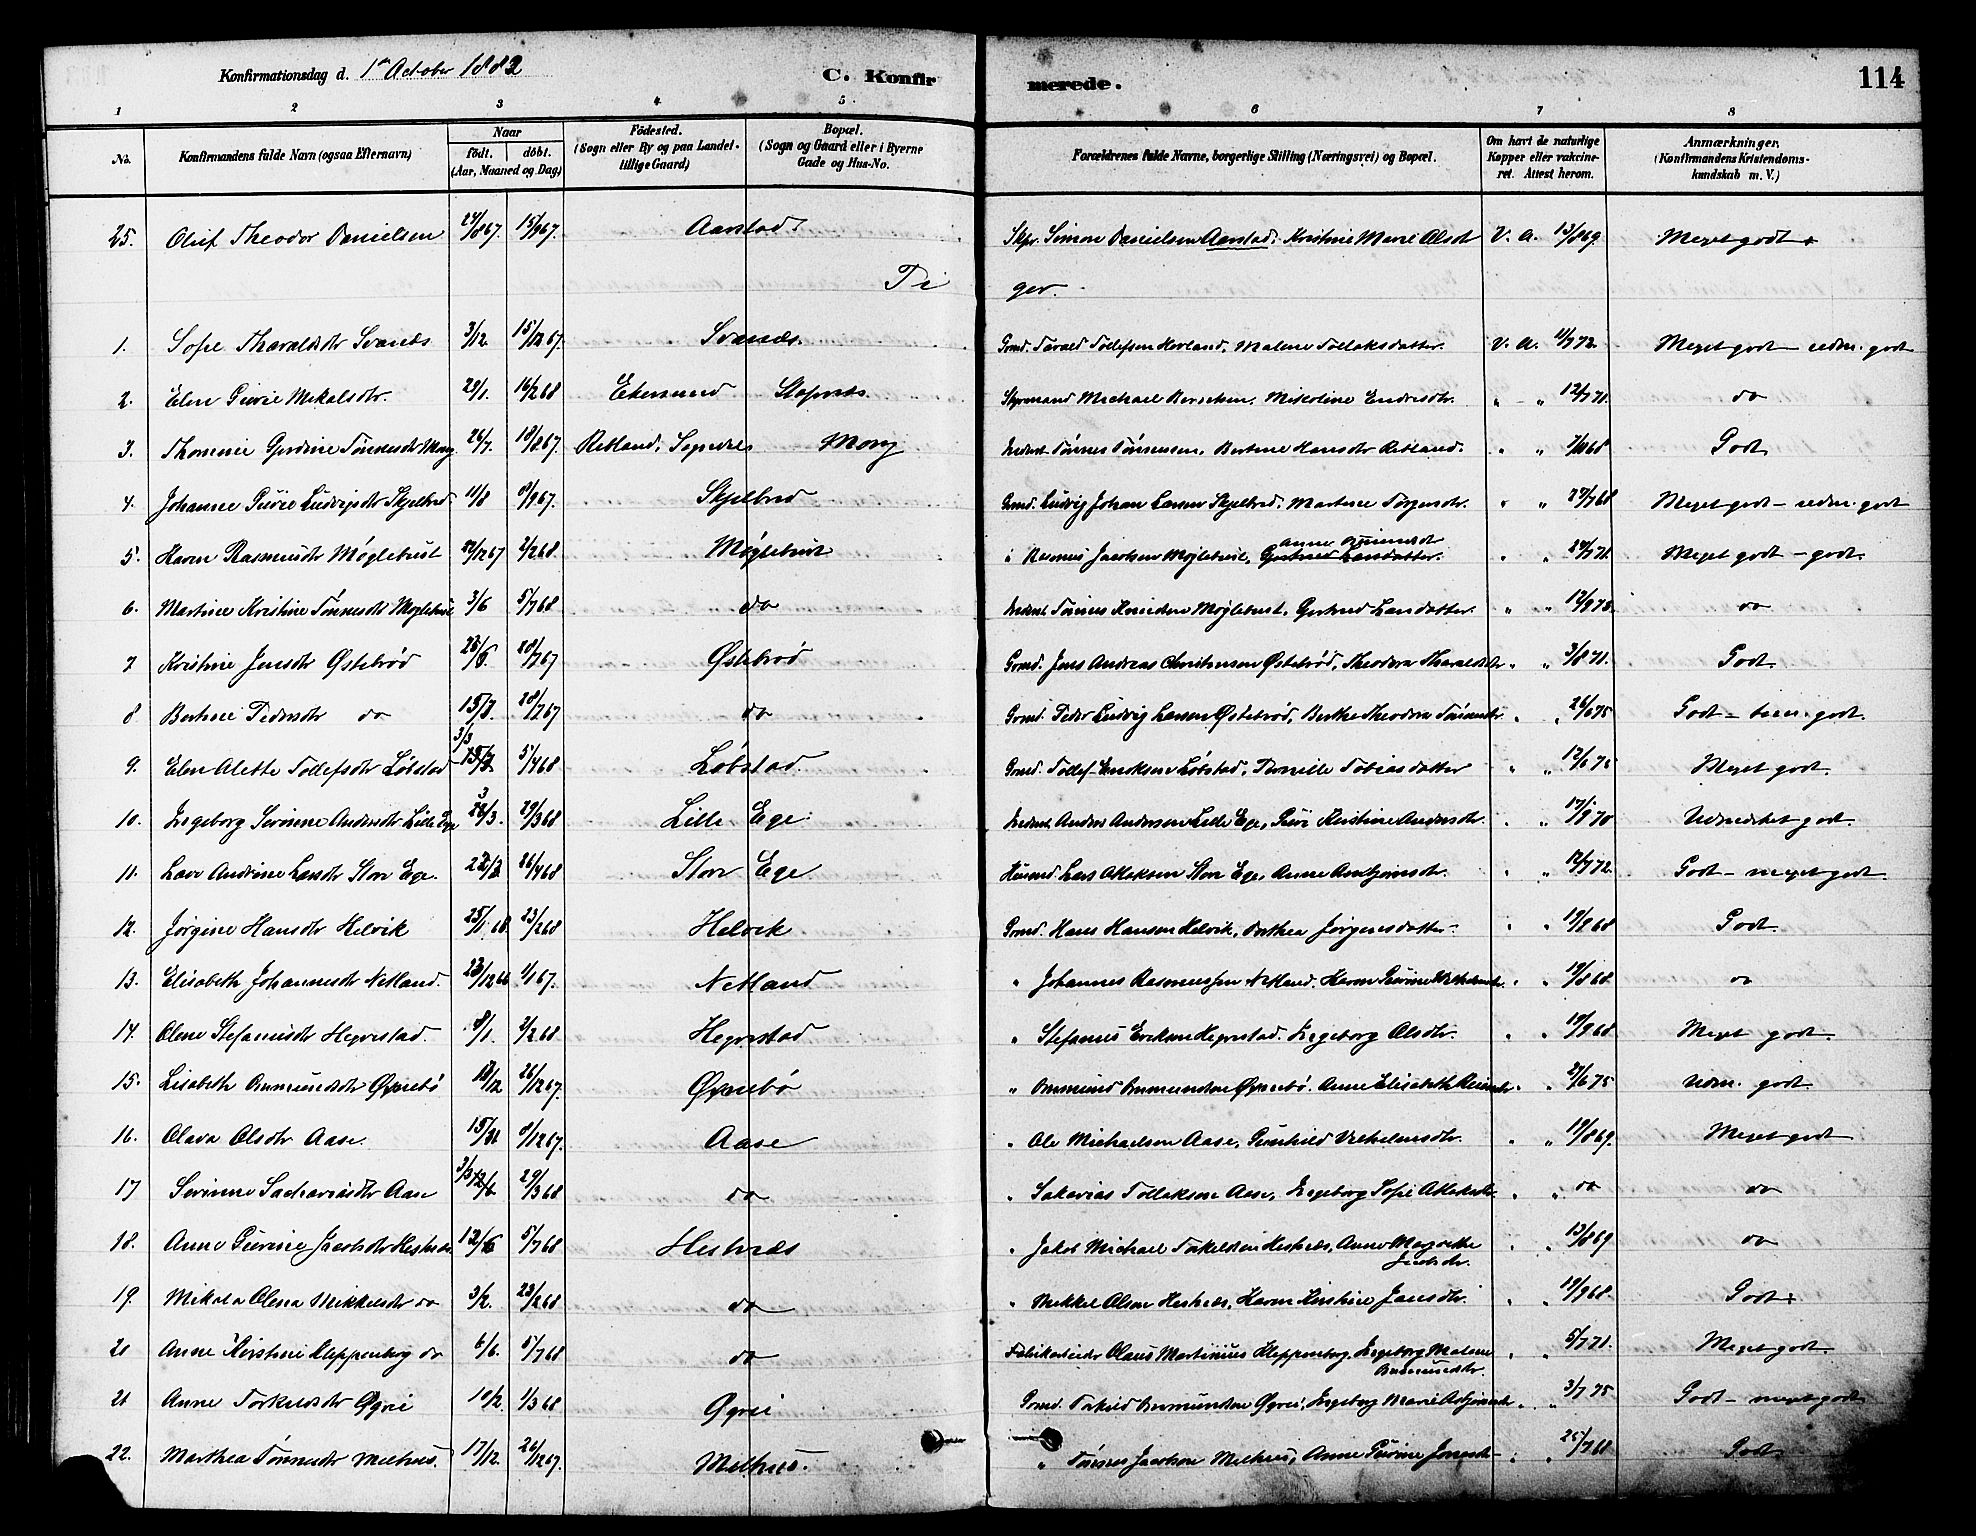 Konfirmationsdag d. 1ste October 1882 C. Konfirmerede. 114
1 2 3 4 5 6 7 8
No. Konfirmandens fulde Navn (ogsaa Efternavn) Naar födt. döbt. (Aar, Maaned og Dag) Födested. (Sogn eller By og paa Landet tillige Gaard) Bopæl. (Sogn og Gaard eller i Byerne Gade og Hus-No. Forældrenes fulde Navne, borgerlige Stilling (Næringsvei) og Bopæl. Om havt de naturlige Kopper eller vakcineret. Attest herom. Anmærkninger. (Konfirmandens Kristendomskundskab m. V.)
25. Oluf Theodor Danielsen 24/8 67. 15/9 67. Aarstad. Skpr. Simon Danielsen Aarstad. Kristine Marie Olsdtr V. A. 13/8 69. Meget godt
Piger.
1. Sofie Tharaldsdtr Svanæs 3/12. 15/12 67. Svanæs. Gmd. Tarald Tollefsen Hovland, Malene Tollaksdatter. V. A. 11/7 72. Meget godt - udm. godt
2. Elen Mikalsdtr. 20/1. 16/2 68 Ekersund Styrmand Michael " " 12/7 71. do
3. Thomine Gurdine Tønnesdtr Mong 26/7. 18/8 67. Retland, Sogndal Mong Tønnes Tønnesen, Bertine Hansdtr Retland. " " 68 Godt
4. Johanne Ludvigsdtr Skjelbred 11/8 8/9 67. Skjelbred Gmd. Ludvig Johan Larsen Skjelbred. Martine Torgersdtr. " " 27/7 68 Meget godt - udm. godt
5. Karen Rasmusdtr Møglebust 22/12 67 2/2 68. Møglebust " Rasmus Jacobsen Møglebust, Gertrud Larsdatter. Anne " " 71. Meget godt - godt.
6. Martine Kristine Tønnesdtr Møglebust 3/6 5/7 68. do Tønnes Knudsen Møglebust, Gertrud Larsdatter. " " 12/9 78. do
7 Kristine Jensdtr Østebrød 23/6. 28/7 67 Østebrød Gmd. Jens Andreas Christensen Østebrød, Theodora Tharaldsdtr " " 3/8 71. Godt.
8 Bertine Pedersdtr do 15/7. 28/7 67 do Gmd. Peder Ludvig Larsen Østebrød, Berthe Theodora Tønnesdtr " " 26/6 75 Godt - godt.
9. Elen Alette Tollefsdtr Løbstad 3/3 5/4 68 Løbstad. Gmd. Tollef Eriksen Løbstad, Pernille Tobiasdatter " " 12/6 75 Meget godt.
10. Ingeborg Serine Andersdtr Lille Ege 22/3. 29/3 68 Lille Ege. Anders Andersen Lille Ege, Kristine Andersdtr. " " 17/8 70 Udmærket godt.
11. Lava Andrine Larsdtr Store Ege. 22/3 26/4 68 Store Ege Lars Ollaksen Store Ege, Anne Asbjørnsdtr. " " 12/7 72. Godt - meget godt.
12. Jørgine Hansdtr Helvik 25/1 68. 23/2 68 Helvik Gmd. Hans Hansen Helvik, Dorthea Jørgensdatter " " 19/8 68 Godt.
13. Elisabeth Johannesdtr Netland. 23/12 66 1/1 67. Netland " Johannes Rasmussen Netland. Karen " " 19/8 68. do
14. Olene Stefanusdtr Hegrestad. 8/1. 2/2 68 Hegrestad " Stefanus Eriksen Hegrestad. Ingeborg Olsdtr. " " 19/9 68. Meget godt.
15. Lisabeth Omundsdtr Øgnebø 18/12 26/12 67. Øgnebø " Omund Omundsen Øgnebø. Anne Elisabeth " " 27/6 75 Udm. godt.
16. Olava Olsdtr Aase. 15/ 8/12 67. Aase " Ole Michaelsen Aase, Gunhild Vilhelmsdtr. " " 19/8 69. Meget godt
17 Serine Sachariasdtr Aase 3/3 29/3 68 do " Sakarias Tollaksen Aase, Ingeborg Sofie " " do do
18. Anne Jacobsdtr Hestnæs 12/6 5/7 68 Hestnæs " Jakob Michael Torkeldsen Hestnæs, Anne Margrethe Jacobsdtr. " " 13/8 69 do
19. Mikala Olena Mikkelsdtr do 3/2. 23/2 68 do " Mikkel Olsen Hestnæs, Karen Kirstine Jansdtr. " " 19/9 68. Godt
20 Anne Kirstine Kleppenberg do 6/6. 5/7 68 do Fabrikarbeider Olaus Martinius Kleppenberg, Ingeborg Malene Omundsdtr " " 5/7 71. Meget godt.
21 Anne Torkelsdtr Øgrei 10/2. 1/3 68 Øgrei Gmd. Torkild Omundsen Øgrei, Ingeborg Marie " " 3/7 75 Godt - meget godt
22. Marthea Tønnesdtr Melhus. 17/12. 26/12 67. Melhus. " Tønnes Jacobsen Melhus, Anne " " 25/7 68 Godt